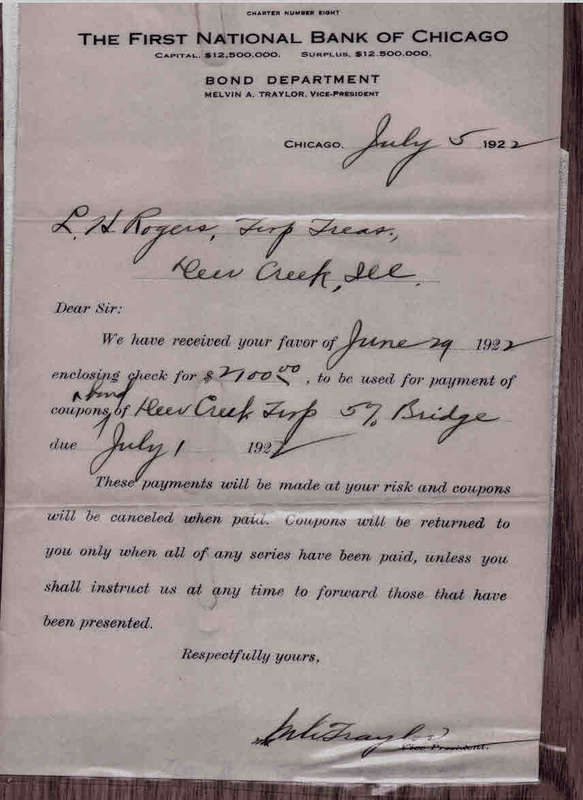 CHARTER NUMBER EIGHT
THE FIRST NATIONAL BANK OF CHICAGO
CAPITAL, $12,500,000. SURPLUS, $12,500,000.
BOND DEPARTMENT
MELVIN A. TRAYLOR, VICE-PRESIDENT
CHICAGO, July 5 1922
L. H Rogers, Twp Treas.,
Deer Creek, Ill.
Dear Sir:
We have received your favor of June 29 1922
enclosing check for $2100 00, to be used for payment of
bond
coupons of Deer Creek Twp 5% Bridge
due July 1 1922
These payments will be made at your risk and coupons
will be canceled when paid. Coupons will be returned to
you only when all of any series have been paid, unless you
shall instruct us at any time to forward those that have
been presented.
Respectfully yours,
Traylor
Vice-President.